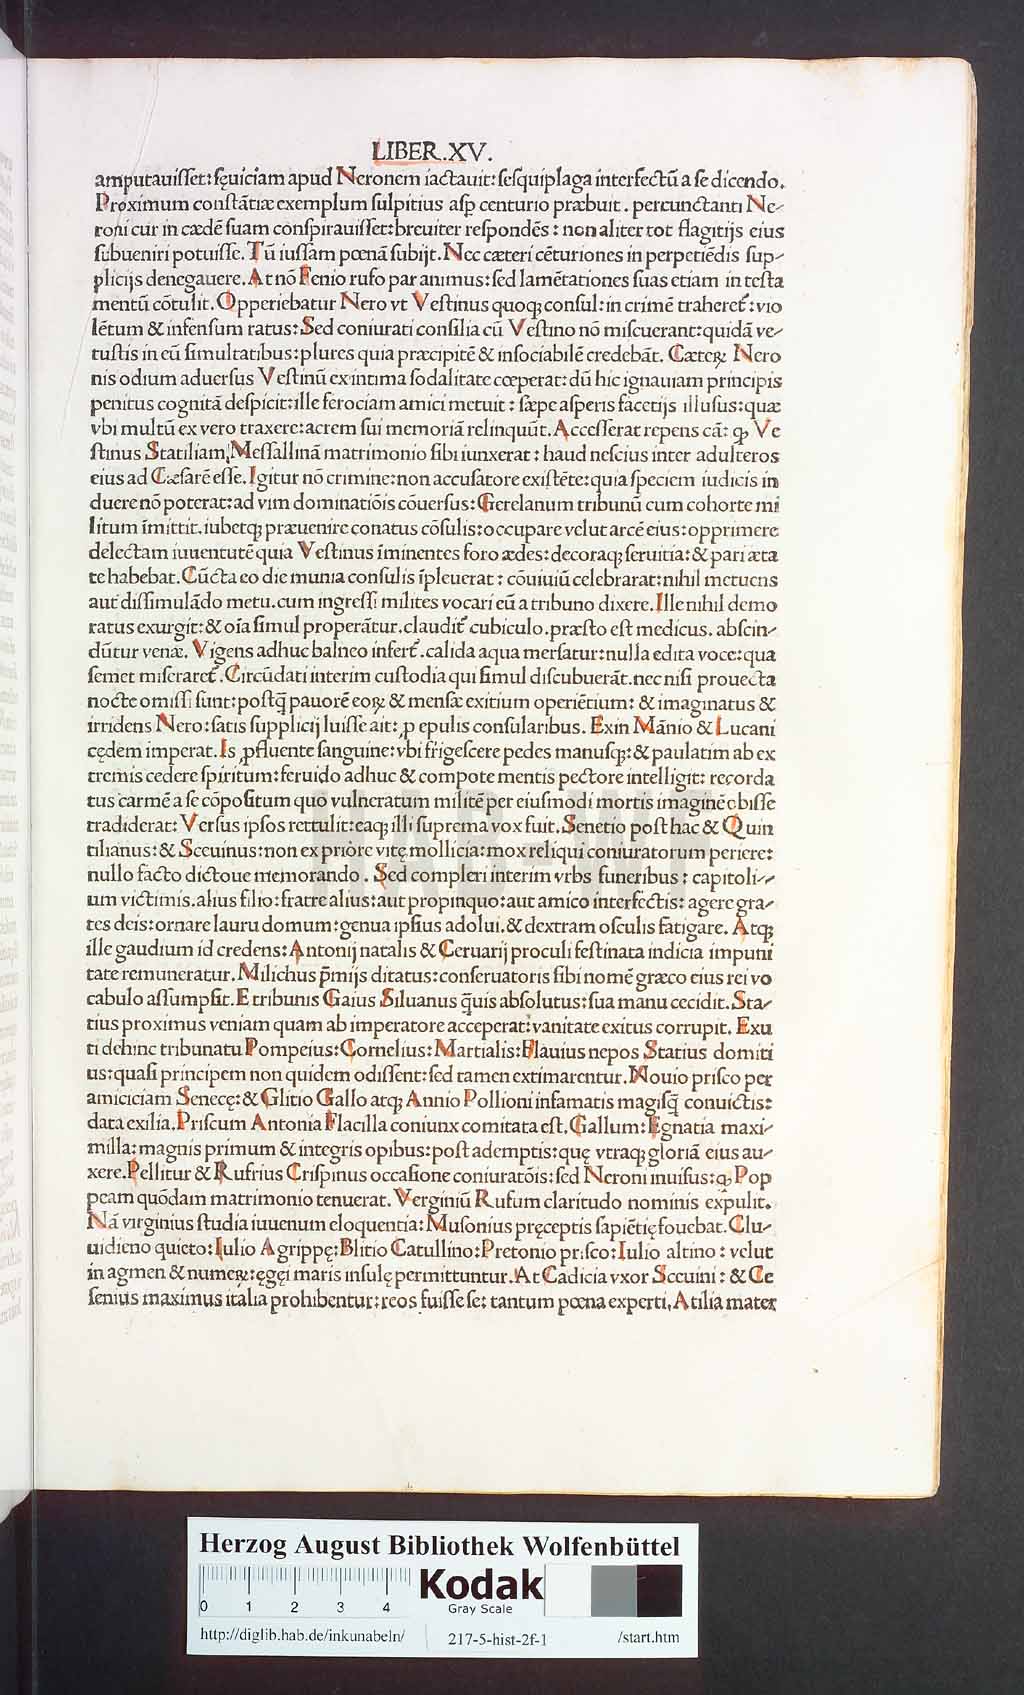 LIBER.XV.
amputauisset: sęuiciam apud Neronem iactauit: sesquiplaga interfectū a se dicendo.
Proximum constātiæ exemplum sulpitius asꝑ centurio præbuit. percunctanti Ne-
roni cur in cædē suam conspirauisset: breuiter respondēs: non aliter tot flagitijs eius
subueniri potuisse. Tū iussam pœnā subijt. Nec cæteri cēturiones in perpetiēdis sup-
plicijs denegauere. At nō Fenio rufo par animus: sed lamētationes suas etiam in testa
mentū cōtulit. Opperiebatur Nero vt Vestinus quoqꝫ consul: in crimē traheret̃: vio
lētum & infensum ratus: Sed coniurati consilia cū Vestino nō miscuerant: quidā ve-
tustis in eū simultatibus: plures quia præcipitē & insociabilē credebāt. Cæteꝝ Nero
nis odium aduersus Vestinū ex intima sodalitate cœperat: dū hic ignauiam principis
penitus cognitā despicit: ille ferociam amici metuit: sæpe asperis facetijs illusus: quæ
vbi multū ex vero traxere: acrem sui memoriā relinquūt. Accesserat repens cā: ꝙ Ve
stinus Statiliam Messallinā matrimonio sibi iunxerat: haud nescius inter adulteros
eius ad Cæsarē esse. Igitur nō crimine: non accusatore existēte: quia speciem iudicis in
duere nō poterat: ad vim dominatiōis cōuersus: Gerelanum tribunū cum cohorte mi
litum īmittit. iubetqꝫ præuenire conatus cōsulis: occupare velut arcē eius: opprimere
delectam iuuentutē quia Vestinus īminentes foro ædes: decoraqꝫ seruitia: & pari æta
te habebat. Cūcta eo die munia consulis īpleuerat: cōuiuiū celebrarat: nihil metuens
aut dissimulādo metu. cum ingressi milites vocari eū a tribuno dixere. Ille nihil demo
ratus exurgit: & oīa simul properātur. claudit̃ cubiculo. præsto est medicus. abscin-
dūtur venæ. Vigens adhuc balneo infert̃. calida aqua mersatur: nulla edita voce: qua
semet miseraret̃. Circūdati interim custodia qui simul discubuerāt. nec nisi prouecta
nocte omissi sunt: postꝗ̃ pauorē eoꝝ & mensæ exitium operiētium: & imaginatus &
irridens Nero: satis supplicij luisse ait: ꝓ epulis consularibus. Exin Mānio & Lucani
cędem imperat. Is ꝓfluente sanguine: vbi frigescere pedes manusqꝫ: & paulatim ab ex
tremis cedere spiritum: feruido adhuc & compote mentis pectore intelligit: recorda
tus carmē a se cōpositum quo vulneratum militē per eiusmodi mortis imaginē obisse
tradiderat: Versus ipsos rettulit: eaqꝫ illi suprema vox fuit. Senetio post hac & Quin
tilianus: & Sceuinus: non ex priore vitę mollicia: mox reliqui coniuratorum periere:
nullo facto dictoue memorando. Sed compleri interim vrbs funeribus: capitoli-
um victimis. alius filio: fratre alius: aut propinquo: aut amico interfectis: agere gra-
tes deis: ornare lauru domum: genua ipsius adolui. & dextram osculis fatigare. Atqꝫ
ille gaudium id credens: Antonij natalis & Ceruarij proculi festinata indicia impuni
tate remuneratur. Milichus p̄mijs ditatus: conseruatoris sibi nomē græco eius rei vo
cabulo assumpsit. E tribunis Gaius Siluanus ꝗ̃uis absolutus: sua manu cecidit. Sta-
tius proximus veniam quam ab imperatore acceperat: vanitate exitus corrupit. Exu
ti dehinc tribunatu Pompeius: Cornelius: Martialis: Flauius nepos Statius domiti
us: quasi principem non quidem odissent: sed tamen extimarentur. Nouio prisco per
amiciciam Senecę: & Glitio Gallo atqꝫ Annio Pollioni infamatis magisꝗ̃ conuictis:
data exilia. Priscum Antonia Flacilla coniunx comitata est. Gallum: Egnatia maxi-
milla: magnis primum & integris opibus: post ademptis: quę vtraqꝫ gloriā eius au-
xere. Pellitur & Rufrius Crispinus occasione coniuratōis: sed Neroni inuisus: ꝙ Pop
peam quōdam matrimonio tenuerat. Verginiū Rufum claritudo nominis expulit.
Nā virginius studia iuuenum eloquentia: Musonius pręceptis sapiētię fouebat. Clu-
uidieno quieto: Iulio Agrippę: Blitio Catullino: Pretonio prisco: Iulio altino: velut
in agmen & numeꝝ: ęgęi maris insulę permittuntur. At Cadicia vxor Sceuini: & Ce
senius maximus italia prohibentur: reos fuisse se: tantum pœna experti, Atilia mater
Herzog August Bibliothek Wolfenbüttel
0 1 2 3 4
Kodak
Gray Scale
http://diglib.hab.de/inkunabeln/ 217-5-hist-2f-1 /start.htm
HAB-WF